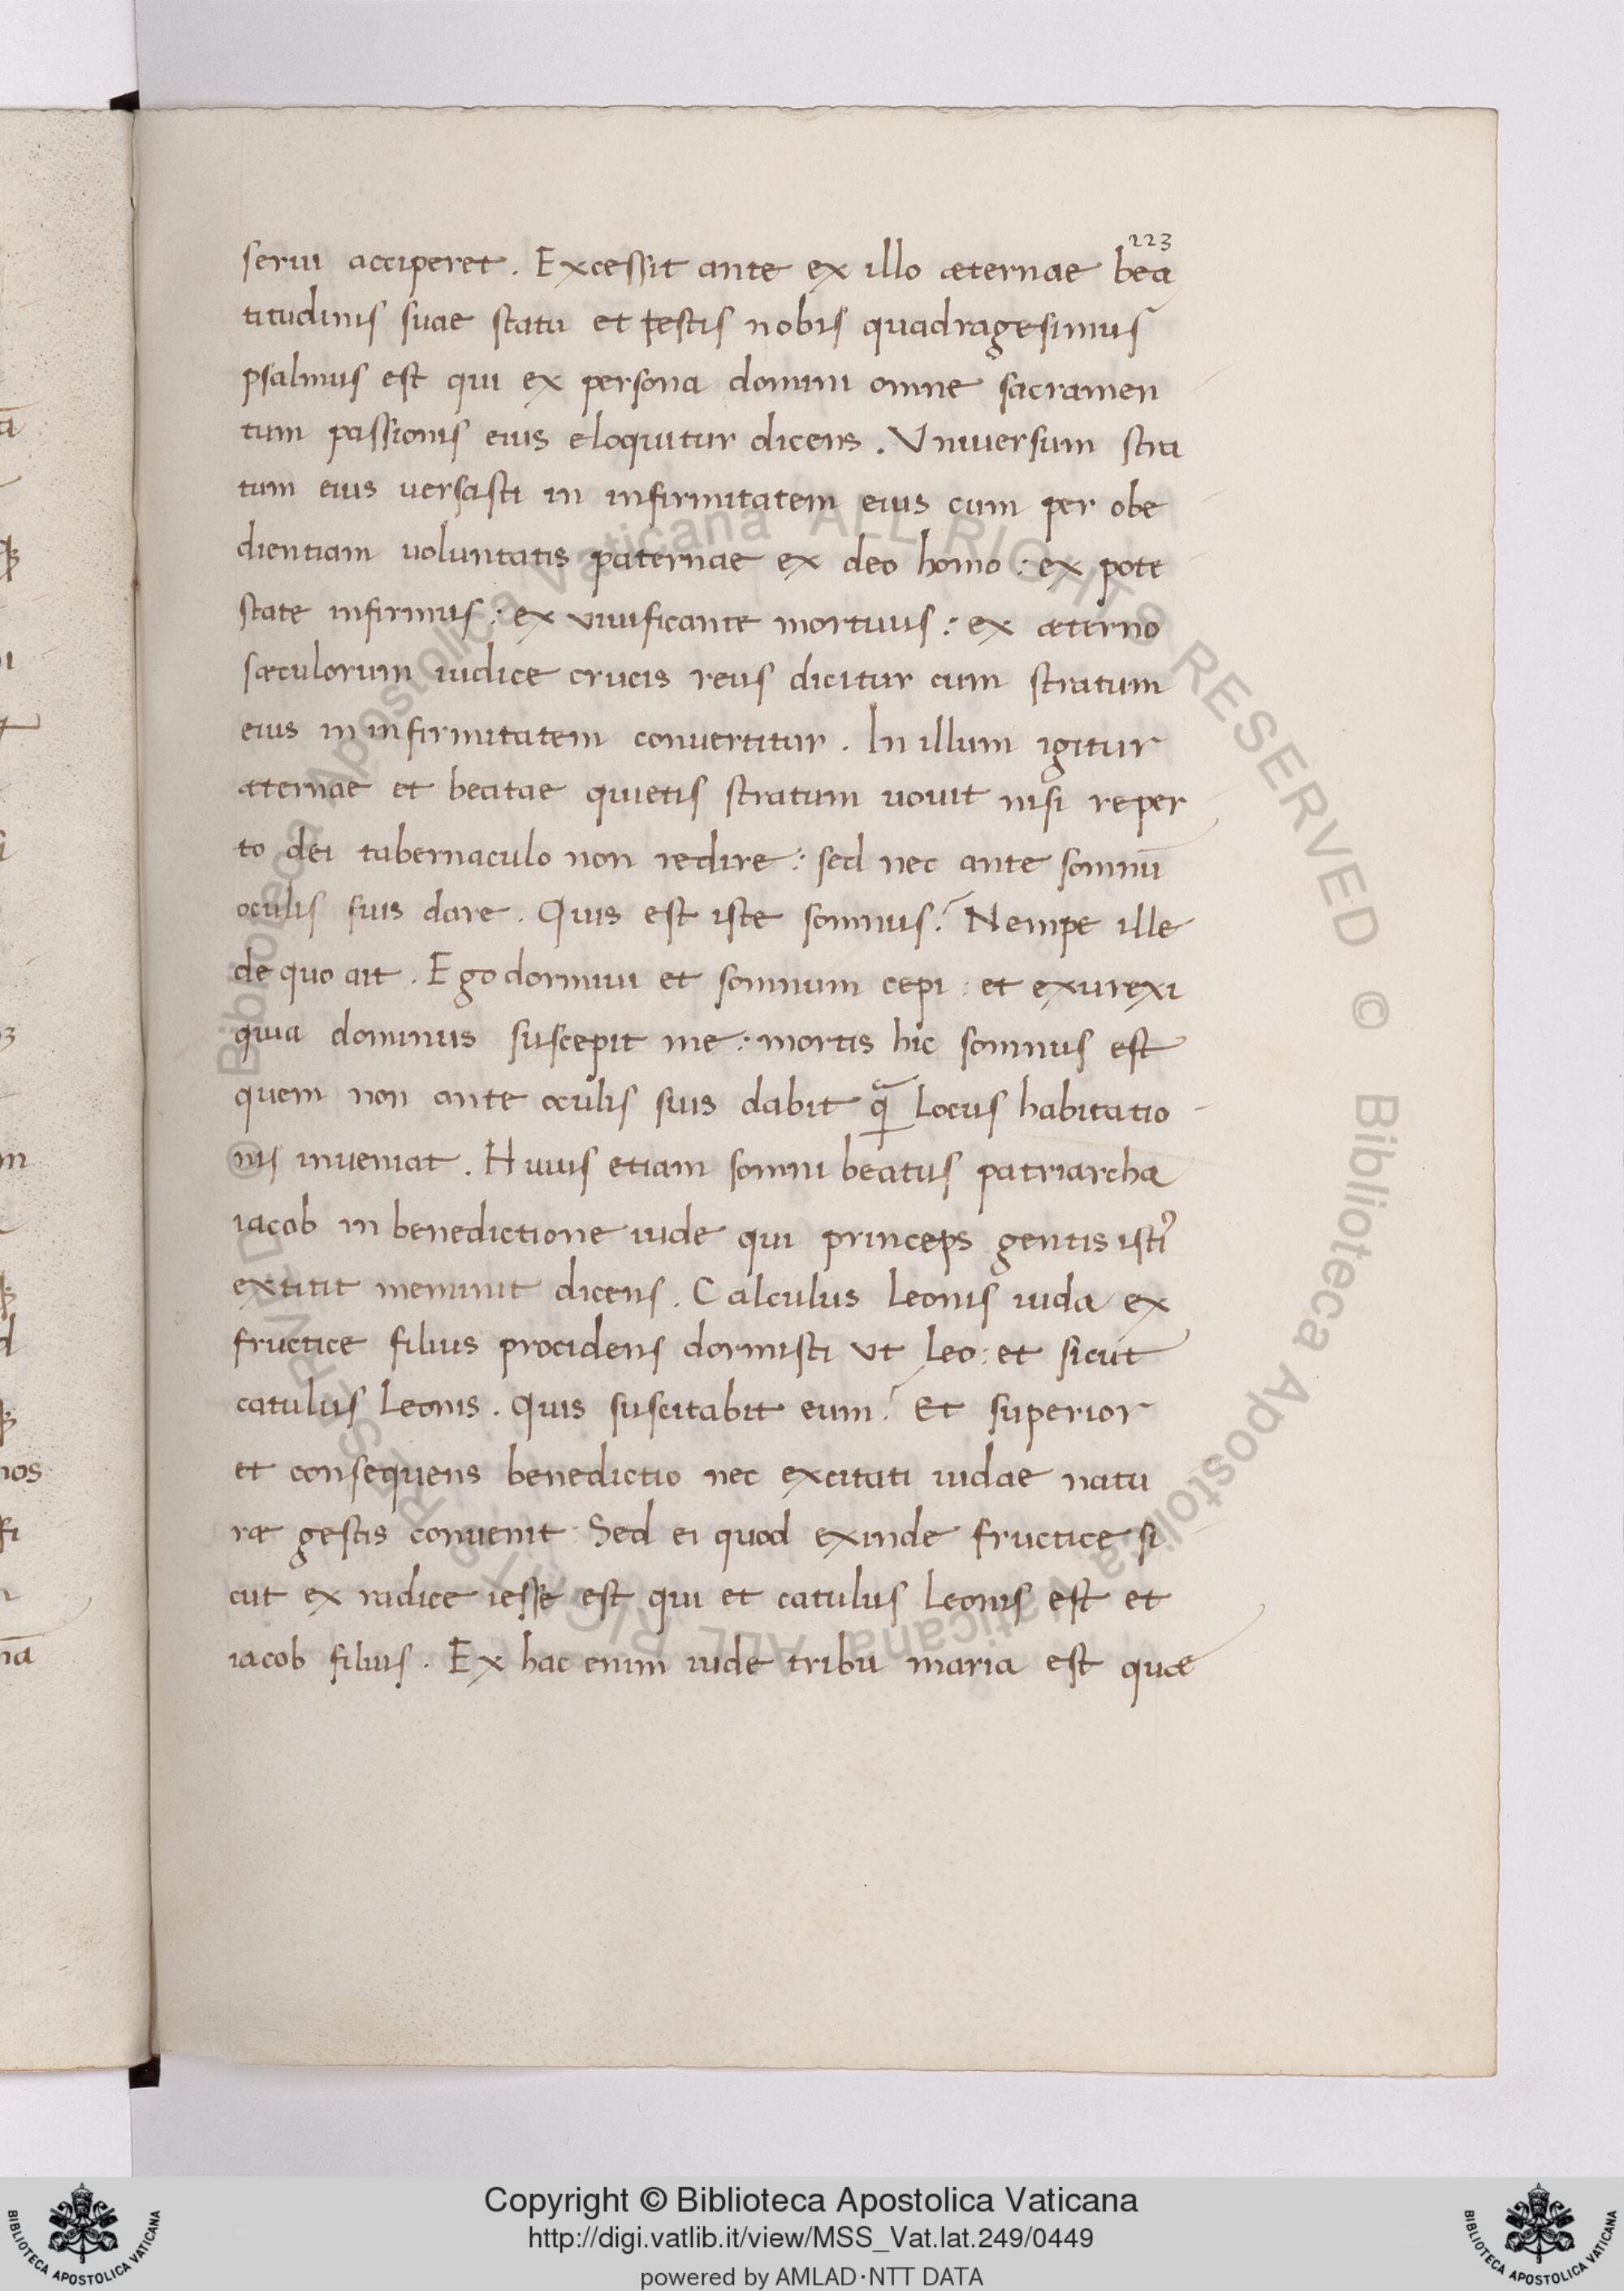 223
serui acciperet. Excessit ante ex illo æternae bea
titudinis suae statu et testis nobis quadragesimus
psalmus est qui ex persona domini omne sacramen
tum passionis eius eloquitur dicens. Vniuersum stra
tum eius uersasti in infirmitatem eius cum per obe
dientiam uoluntatis paternae ex deo homo: ex pote
state infirmus: ex viuificante mortuus: ex æterno
sæculorum iudice crucis reus dicitur cum stratum
eius in infirmitatem conuertitur. In illum igitur
æternae et beatae quietis stratum uouit nisi reper
to dei tabernaculo non redire: sed nec ante somnū
oculis suis dare. Quis est iste somnus? Nempe ille
de quo ait. Ego dormiui et somnum cepi: et exurexi
quia dominus suscepit me: mortis hic somnus est
quem non ante oculis suis dabit ꝗ̃ Locus habitatio
nis inueniat. Huius etiam somni beatus patriarcha
iacob in benedictione iude qui princeps gentis istiꝰ
extitit meminit dicens. Calculus Leonis iuda ex
fructice filius procidens dormisti vt Leo: et sicut
catulus Leonis. Quis suscitabit eum? Et superior
et consequens benedictio nec excitati iudae natu
ræ gestis conuenit: Sed ei quod exinde fructice si
cut ex radice iesse est qui et catulus Leonis est et
iacob filius. Ex hac enim iude tribu maria est quæ
© Biblioteca Apostolica Vaticana ALL RIGHTS RESERVED © Biblioteca Apostolica Vaticana ALL RIGHTS RESERVED
Copyright © Biblioteca Apostolica Vaticana
http://digi.vatlib.it/view/MSS_Vat.lat.249/0449
powered by AMLAD·NTT DATA
BIBLIOTECA APOSTOLICA VATICANA
BIBLIOTECA APOSTOLICA VATICANA